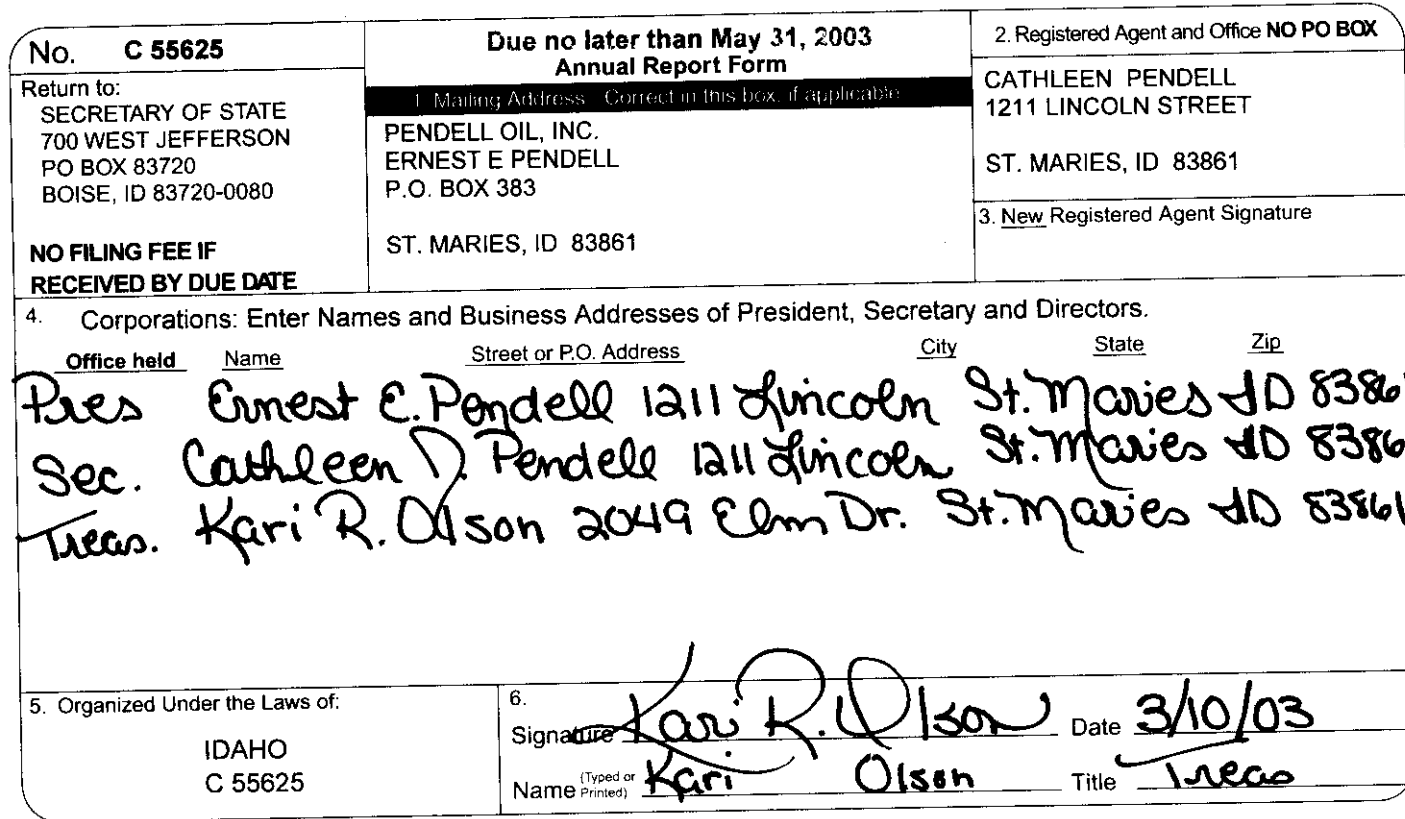 No. C 55625
Return to:
SECRETARY OF STATE
700 WEST JEFFERSON
PO BOX 83720
BOISE, ID 83720-0080
NO FILING FEE IF
RECEIVED BY DUE DATE
Due no later than May 31, 2003
Annual Report Form
1. Mailing Address Correct in this box, if applicable
PENDELL OIL, INC.
ERNEST E PENDELL
P.O. BOX 383
ST. MARIES, ID 83861
2. Registered Agent and Office NO PO BOX
CATHLEEN PENDELL
1211 LINCOLN STREET
ST. MARIES, ID 83861
3. New Registered Agent Signature
4. Corporations: Enter Names and Business Addresses of President, Secretary and Directors.
Office held Name Street or P.O. Address City State Zip
Pres Ernest E. Pendell 1211 Lincoln St. Maries ID 8386
Sec. Cathleen D. Pendell 1211 Lincoln St. Maries ID 8386
Treas. Kari R. Olson 2049 Elm Dr. St. Maries ID 83861
5. Organized Under the Laws of:
IDAHO
C 55625
6.
Signature Kari R. Olson Date 3/10/03
Name (Typed or Printed) Kari Olson Title Treas